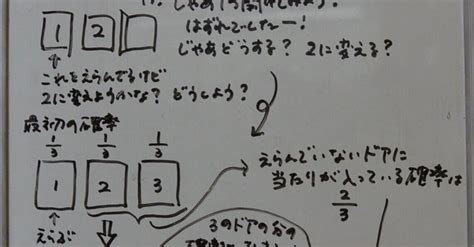 はずれでしたー！
じゃあどうする？ 2に変える？
1 2
これをえらんでるけど
2に変えようかな？ どうしよう？
最初の確率
1/3 1/3 1/3
1 2 3
えらぶ
えらんでいないドアに
当たりが入っている確率は
2/3
3のドアの